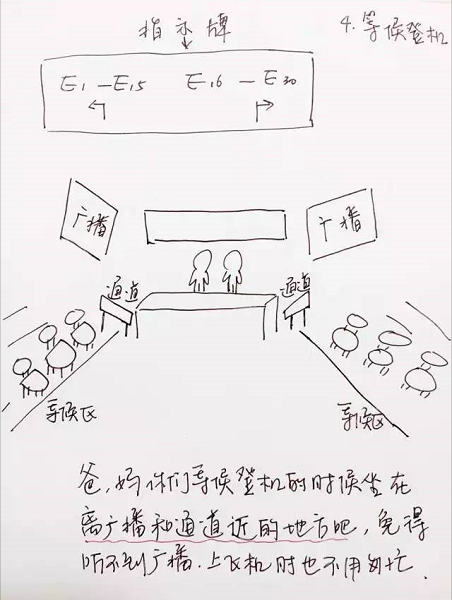 4.等候登机
指示牌
E1—E15 E16—E30
广播
广播
通道
通道
等候区
等候区
爸,妈你们等候登机的时候坐在
离广播和通道近的地方吧,免得
听不到广播.上飞机时也不用匆忙.